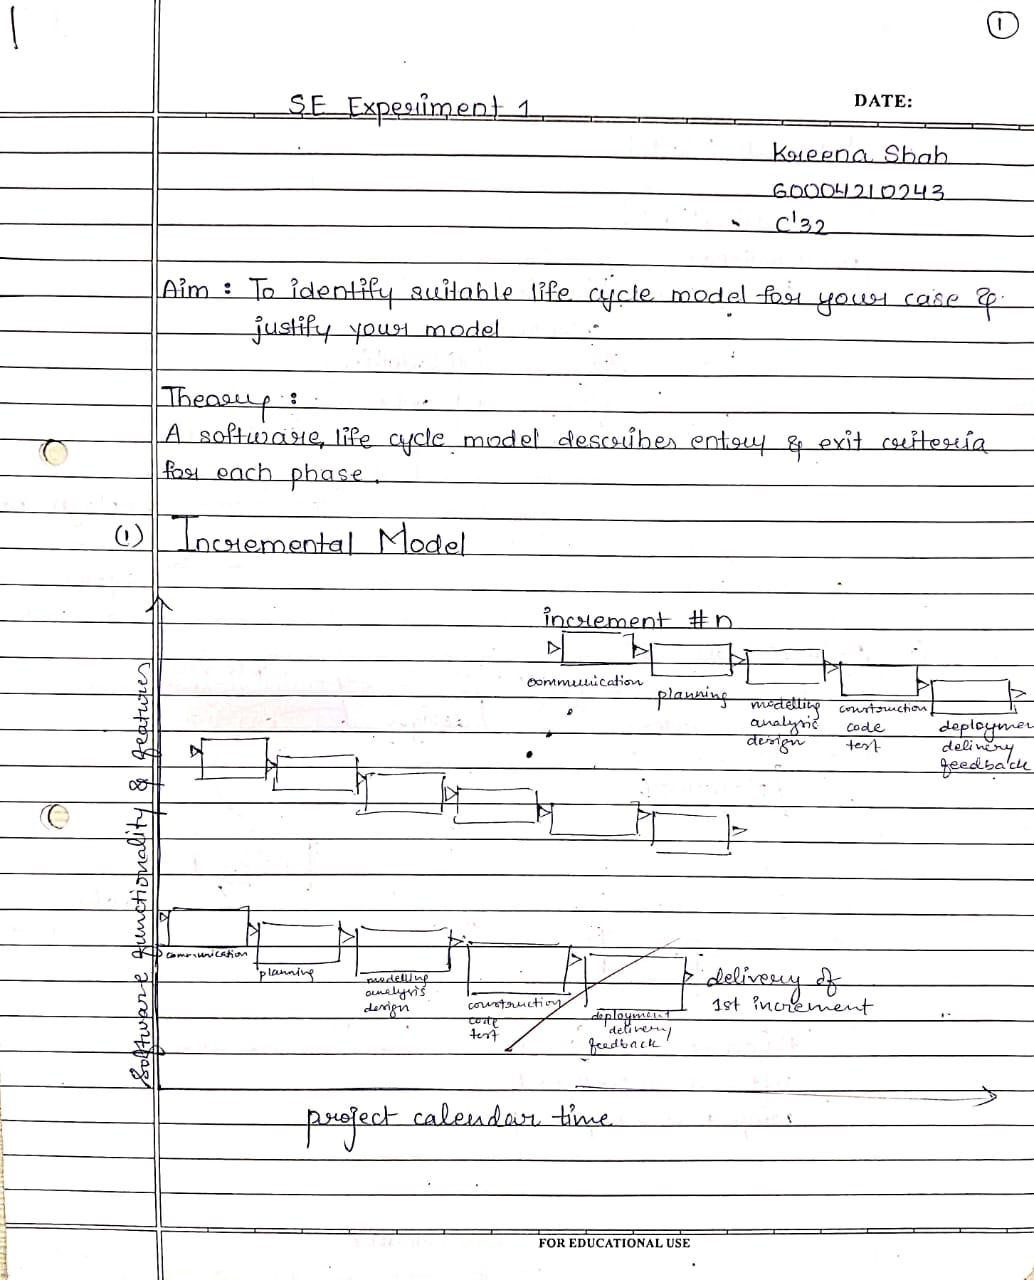 1
SE Experiment 1
DATE:
Kreena Shah
60004210243
C'32
Aim : To identify suitable life cycle model for your case &
justify your model
Theory :
A software, life cycle model describes entry & exit criteria
for each phase.
(1) Incremental Model
increment #n
communication
planning
modelling
analysis
design
construction
code
test
deployment
delivery
feedback
Software functionality & features
communication
planning
modelling
analysis
design
construction
code
test
deployment
delivery
feedback
delivery of
1st increment
project calendar time
FOR EDUCATIONAL USE